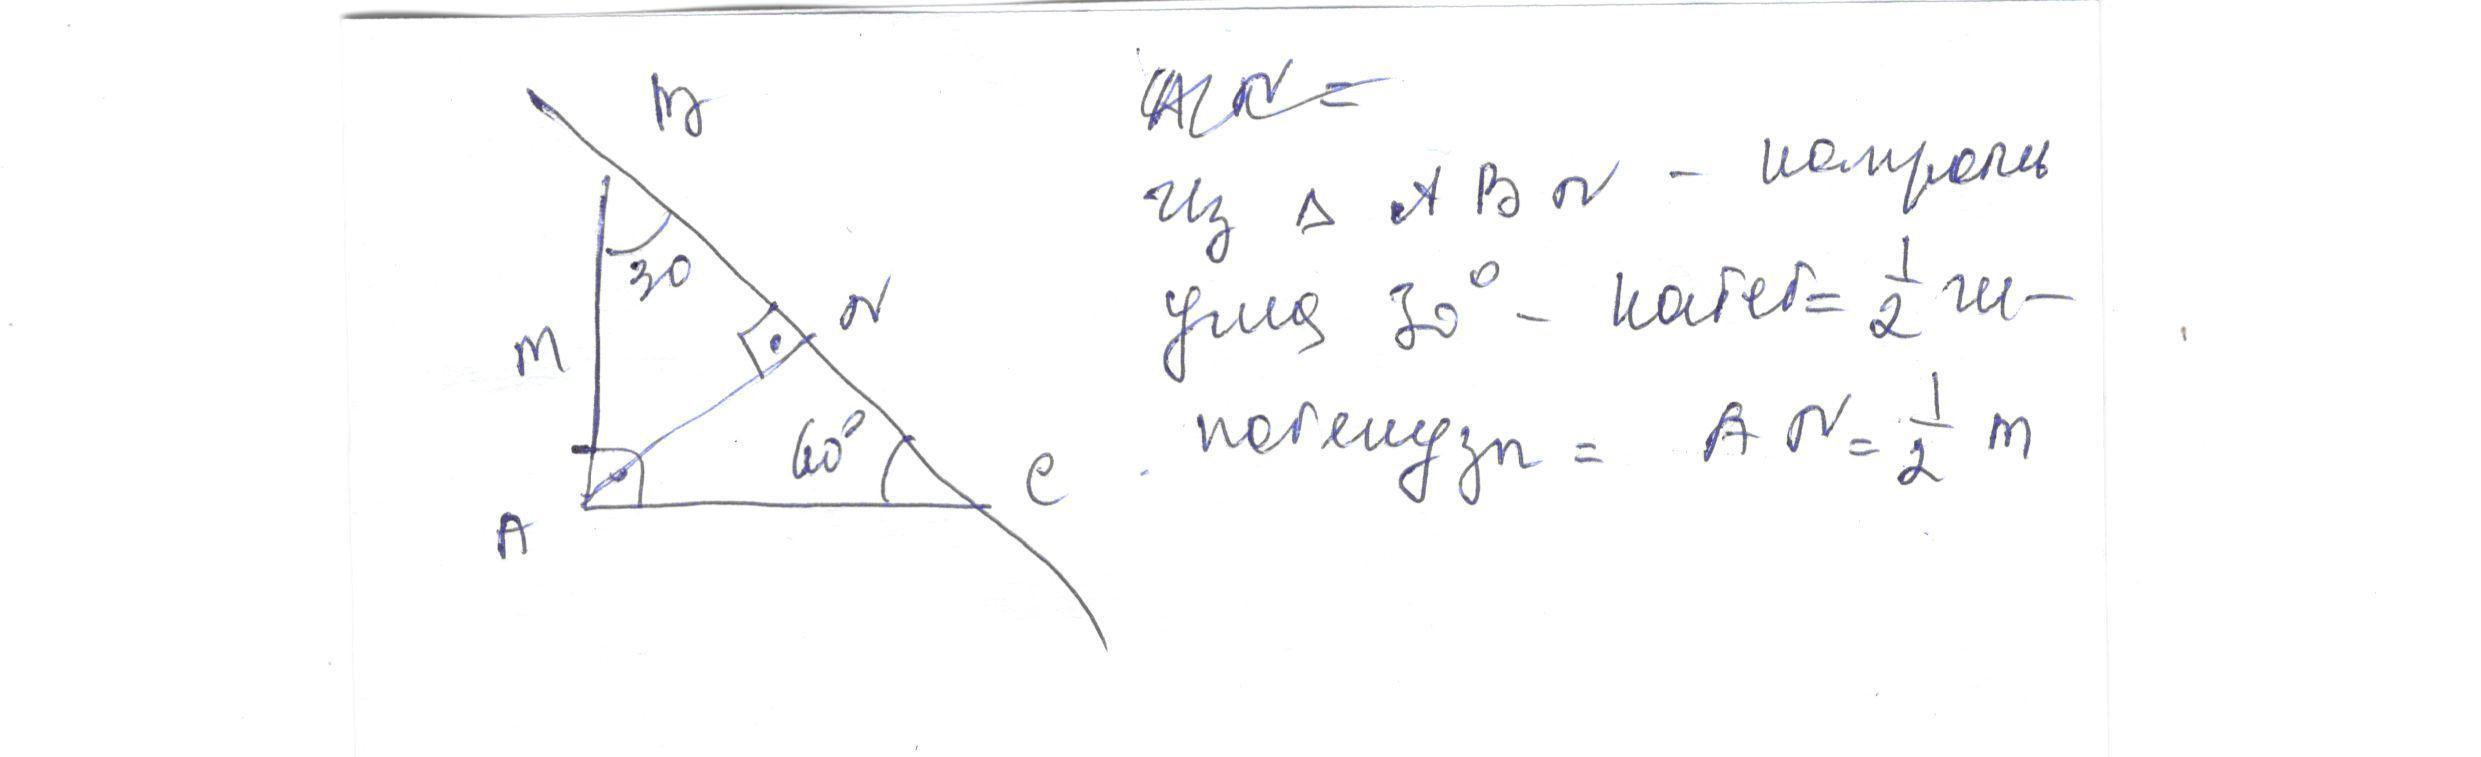 B
30
N
M
60°
C
A
AN =
Из △ ABN - напроти
угла 30° - катет = 1/2 ги-
потенузы = AN = 1/2 m